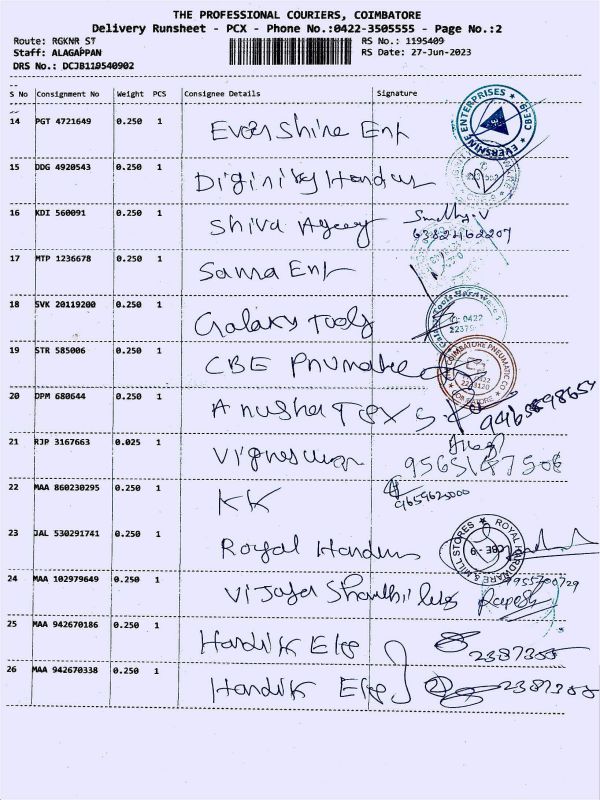 THE PROFESSIONAL COURIERS, COIMBATORE
Delivery Runsheet - PCX - Phone No.:0422-3505555 - Page No.:2
Route: RGKNR ST RS No.: 1195409
Staff: ALAGAPPAN RS Date: 27-Jun-2023
DRS No.: DCJB119540902
S No Consignment No Weight PCS Consignee Details Signature
14 PGT 4721649 0.250 1 Ever Shine Ent
EVERSHINE ENTERPRISES ★ CBE-9
15 DDG 4920543 0.250 1
16 KDI 560091 0.250 1 Shiva Agecy
6382462207
17 MTP 1236678 0.250 1 Sanra Ent
18 SVK 20119200 0.250 1 Galaxy Tools
0422
19 STR 585006 0.250 1 CBE Pnumatic
COIMBATORE PNEUMATIC CO
20 DPM 680644 0.250 1 Anusha Tex
21 RJP 3167663 0.025 1 Vigneswar
22 MAA 860230295 0.250 1 KK
23 JAL 530291741 0.250 1 Royal
ROYAL HARDWARE & MILL STORES ★ CBE-9
24 MAA 102979649 0.250 1 Vijaya
25 MAA 942670186 0.250 1 Hardik Ele
2387355
26 MAA 942670338 0.250 1 Hardik Ele